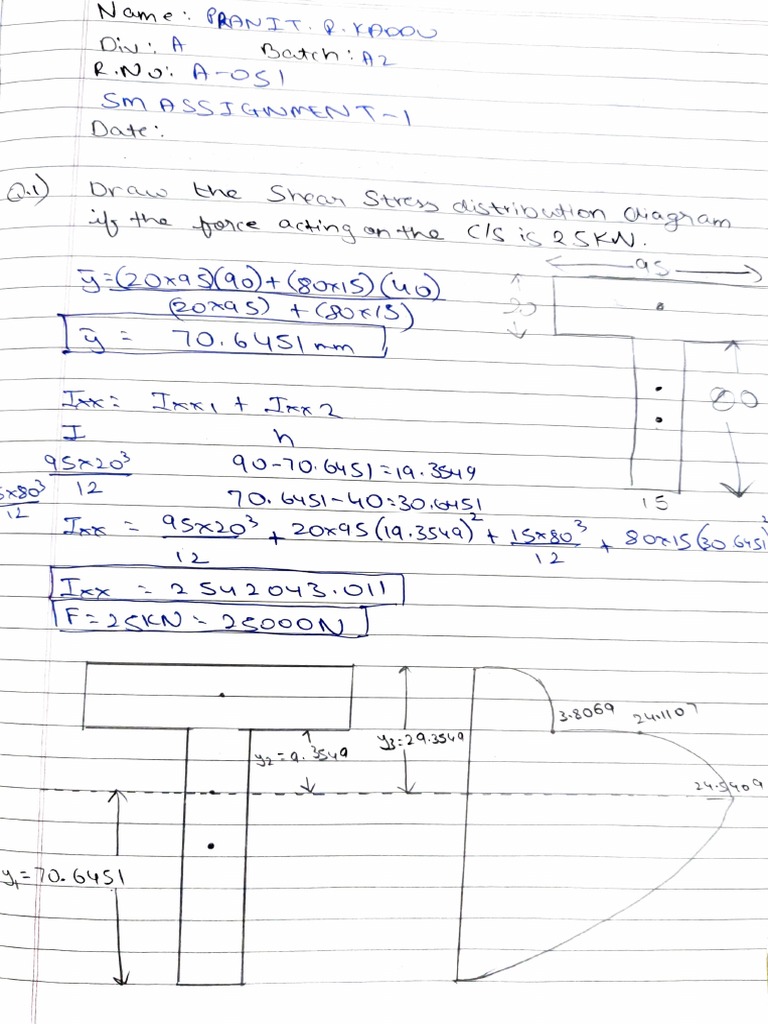 Name: PRANIT. R. KADDU
Div: A Batch: A2
R.No: A-051
SM ASSIGNMENT-1
Date:
Q.1) Draw the Shear Stress distribution diagram
if the force acting on the C/S is 25KN.
ȳ = (20×95)(90) + (80×15)(40)
(20×95) + (80×15)
ȳ = 70.6451 mm
95
20
80
15
Ixx = Ixx1 + Ixx2
I h
95×20³ 90-70.6451=19.3549
12
5×80³ 70.6451-40=30.6451
12
Ixx = 95×20³ + 20×95(19.3549)² + 15×80³ + 80×15(30.6451)²
12 12
Ixx = 2542043.011
F = 25KN = 25000N
3.8069 24.1107
y2 = 9.3549 y3=29.3549
24.5409
y1=70.6451